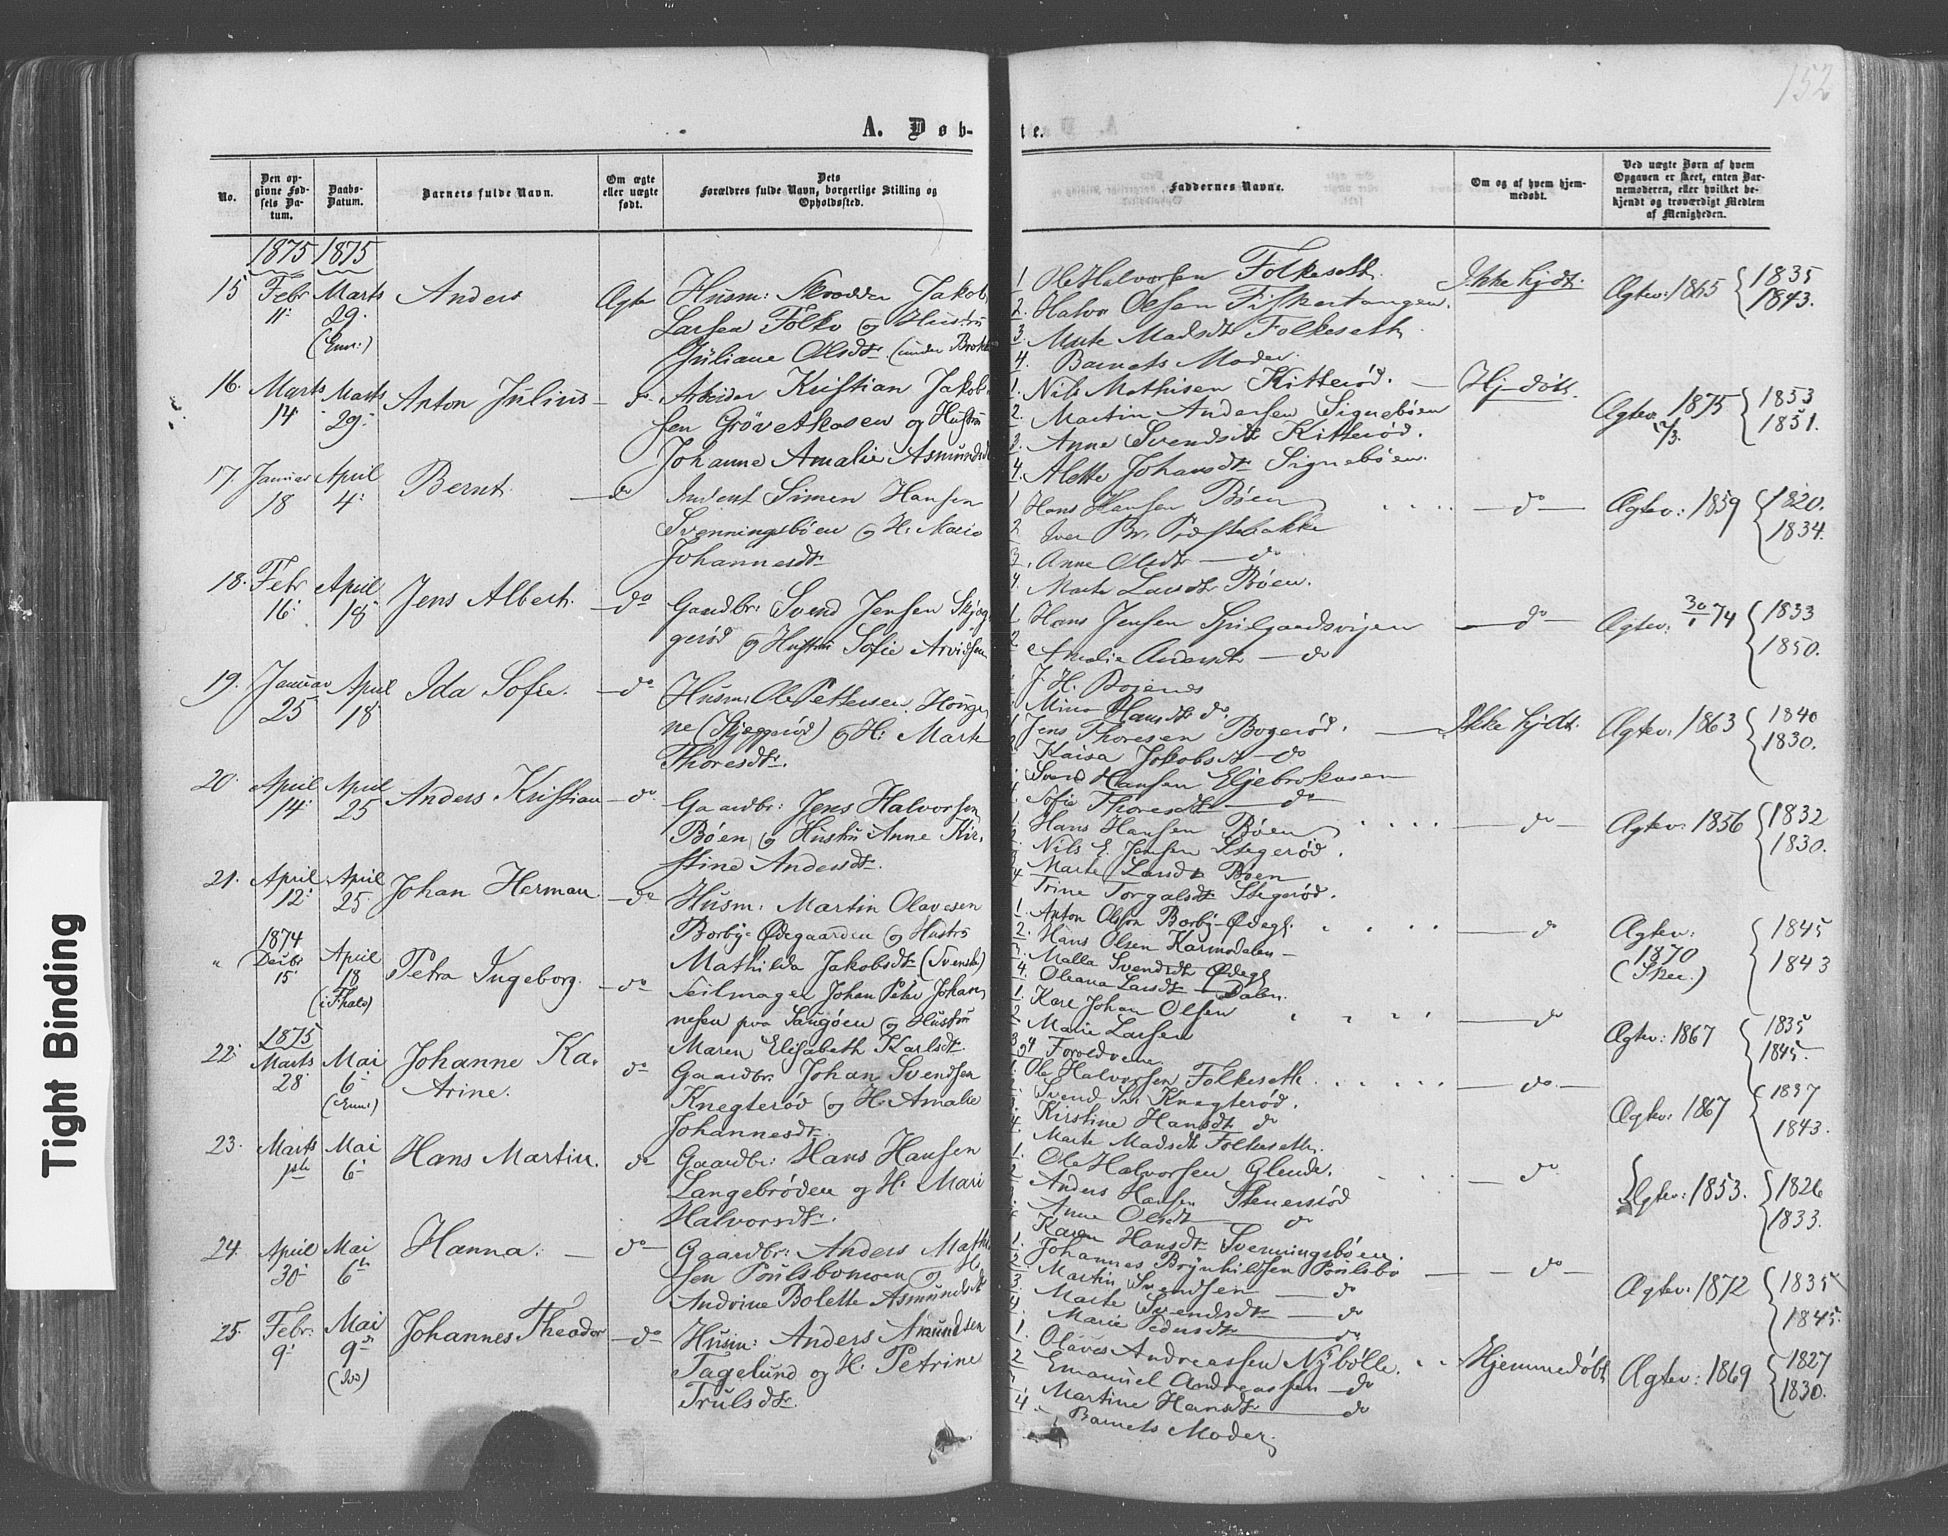 152
A. Døb-
te.
No.
Den op-
givne Fød-
sels Da-
tum.
Daabs-
Datum.
Barnets fulde Navn.
Om ægte
eller uægte
født.
Dets
Forældres fulde Navn, borgerlige Stilling og
Opholdssted.
Faddernes Navne.
Om og af hvem hjem-
medøbt.
Ved uægte Børn af hvem
Opgaven er skeet, enten Bar-
nemoderen, eller hvilket be-
kjendt og troværdigt Medlem
af Menigheden.
1875 1875
15 Febr 11 Marts 29. Anders Ægte
Husm: Skrædder Jakob
Larsen Folke og Hustru
Juliane Olsdt. (under
1. Ole Halvorsen Folkeseth.
2. Halvor Olsen Fiskertangen.
3. Marte Madsdt Folkeseth
4. Barnets Moder.
Ikke hjdt.
Ægtev: 1865 { 1835
1843.
16. Marts 14 Marts 29. Anton Julius do
Arbeider Kristian Jakob
sen og Hustru
Johanne Amalie Asmundsdt
1. Nils Mathisen Kitterød.
2. Martin Andersen Signebøen
3. Anne Svendsdt Kitterød.
4. Alette Johansdt Signebøen.
Hj-døbt.
Ægtev. 1875 { 1853
1851.
17. Januar 18 April 4. Bernt do
Simen Hansen
Svenningsbøen og H. Marie
Johannesdt.
1 Hans Hansen Bøen
2 Iver Br. Præstebakke
3. Anne Olsdt do
4. Marte Larsdt Bøen.
do
Ægtev: 1859 { 1820.
1834.
18. Febr 16 April 18 Jens Albert. do
Gaardbr: Svend Jensen Skjøg
gerød og Hustru Sofie Arvidsen
1 Hans Jensen
2 Amalie Andersdt do
J. H. Bojenes
Mina Hansdt do.
do
Ægtev. 30/1 74 { 1833
1850.
19. Januar 25 April 18 Ida Sofie. do
Husm: Ole Pettersen
ne (Skjøggerød) og H. Marte
Thoresdt.
Jens Thoresen Bogerød.
Kaisa Jokobsdt do
Svend Hansen Elgebrokasen
Sofie Thoresdt do
Ikke hjdt.
Ægtev. 1863 { 1840
1830.
20. April 14 April 25 Anders Kristian do.
Gaardbr: Jens Halvorsen
Bøen og Hustru Anne Kir-
stine Andersdt.
1. Hans Hansen Bøen
Nils E. Jensen Stegerød.
Marte Larsdt Bøen
4 Trine Torgalsdt Stegerød.
do
Ægtev: 1856 { 1832
1830.
21. April 12 April 25 Johan Herman do
Husm: Martin Olavesen
Borby-Ødegaarden og Hustru
Mathilda Jakobsdt (Svensk)
1. Anton Olsson Borby-Ødegd.
2. Hans Olsen Karmodalen
Malla Svendsdt Ødegd
4. Oleana Larsdt Dalen.
do
Ægtev:
1870
{ 1845
1843
" 1874 Decbr 15 April 18 (i Hals) Petra Ingeborg. do
Seilmager Johan Peter Johan
nesen paa Saugøen og Hustru
Maren Elisabeth Karlsdt.
1. Karl Johan Olsen
2 Marie Larsen
3 og 4 Forældrene
do
Ægtev: 1867 { 1835
1845.
1875
22. Marts 28 Mai 6 Johanne Ka-
trine. do
Gaardbr. Johan Svendsen
Knegterød og H. Amalie
Johannesdt.
1. Ole Halvorsen Folkeseth
Svend Knegterød.
Kirstine Hansdt do
4. Marte Madsdt Folkeseth.
do
Ægtev: 1867 { 1837
1843.
23. Marts 1ste Mai 6 Hans Martin. do
Gaardbr: Hans Hansen
Langebrøden og H. Mari
Halvorsdt.
1. Ole Halvorsen Glende.
2 Anders Hansen Stenersrød
Anne Olsdt do
Karen Hansdt Svenningsbøen.
do
Ægtev: 1853. { 1826
1833.
24. April 30 Mai 6 Hanna. do
Gaardbr: Anders Math
sen Poulsbomoen og H.
Andrine Bolette Asmundsdt
1. Johannes Brynhildsen Poulsbo
2 Martin Svendsen do
3. Marte Svendsdt do
4. Marie Pedersdt do
do
Ægtev: 1872 { 1835
1845.
25. Febr. 9 Mai 9 Johannes Theodor do
Husm: Anders Amundsen
Tagelund og H. Petrine
Trulsdt.
1. Olaves Andreassen Nybølle.
2 Emanuel Andreassen do
Martine Hansdt do
4 Barnets Moder.
Hjemmedøbt
Ægtev: 1869 { 1827
1830.
Tight Binding